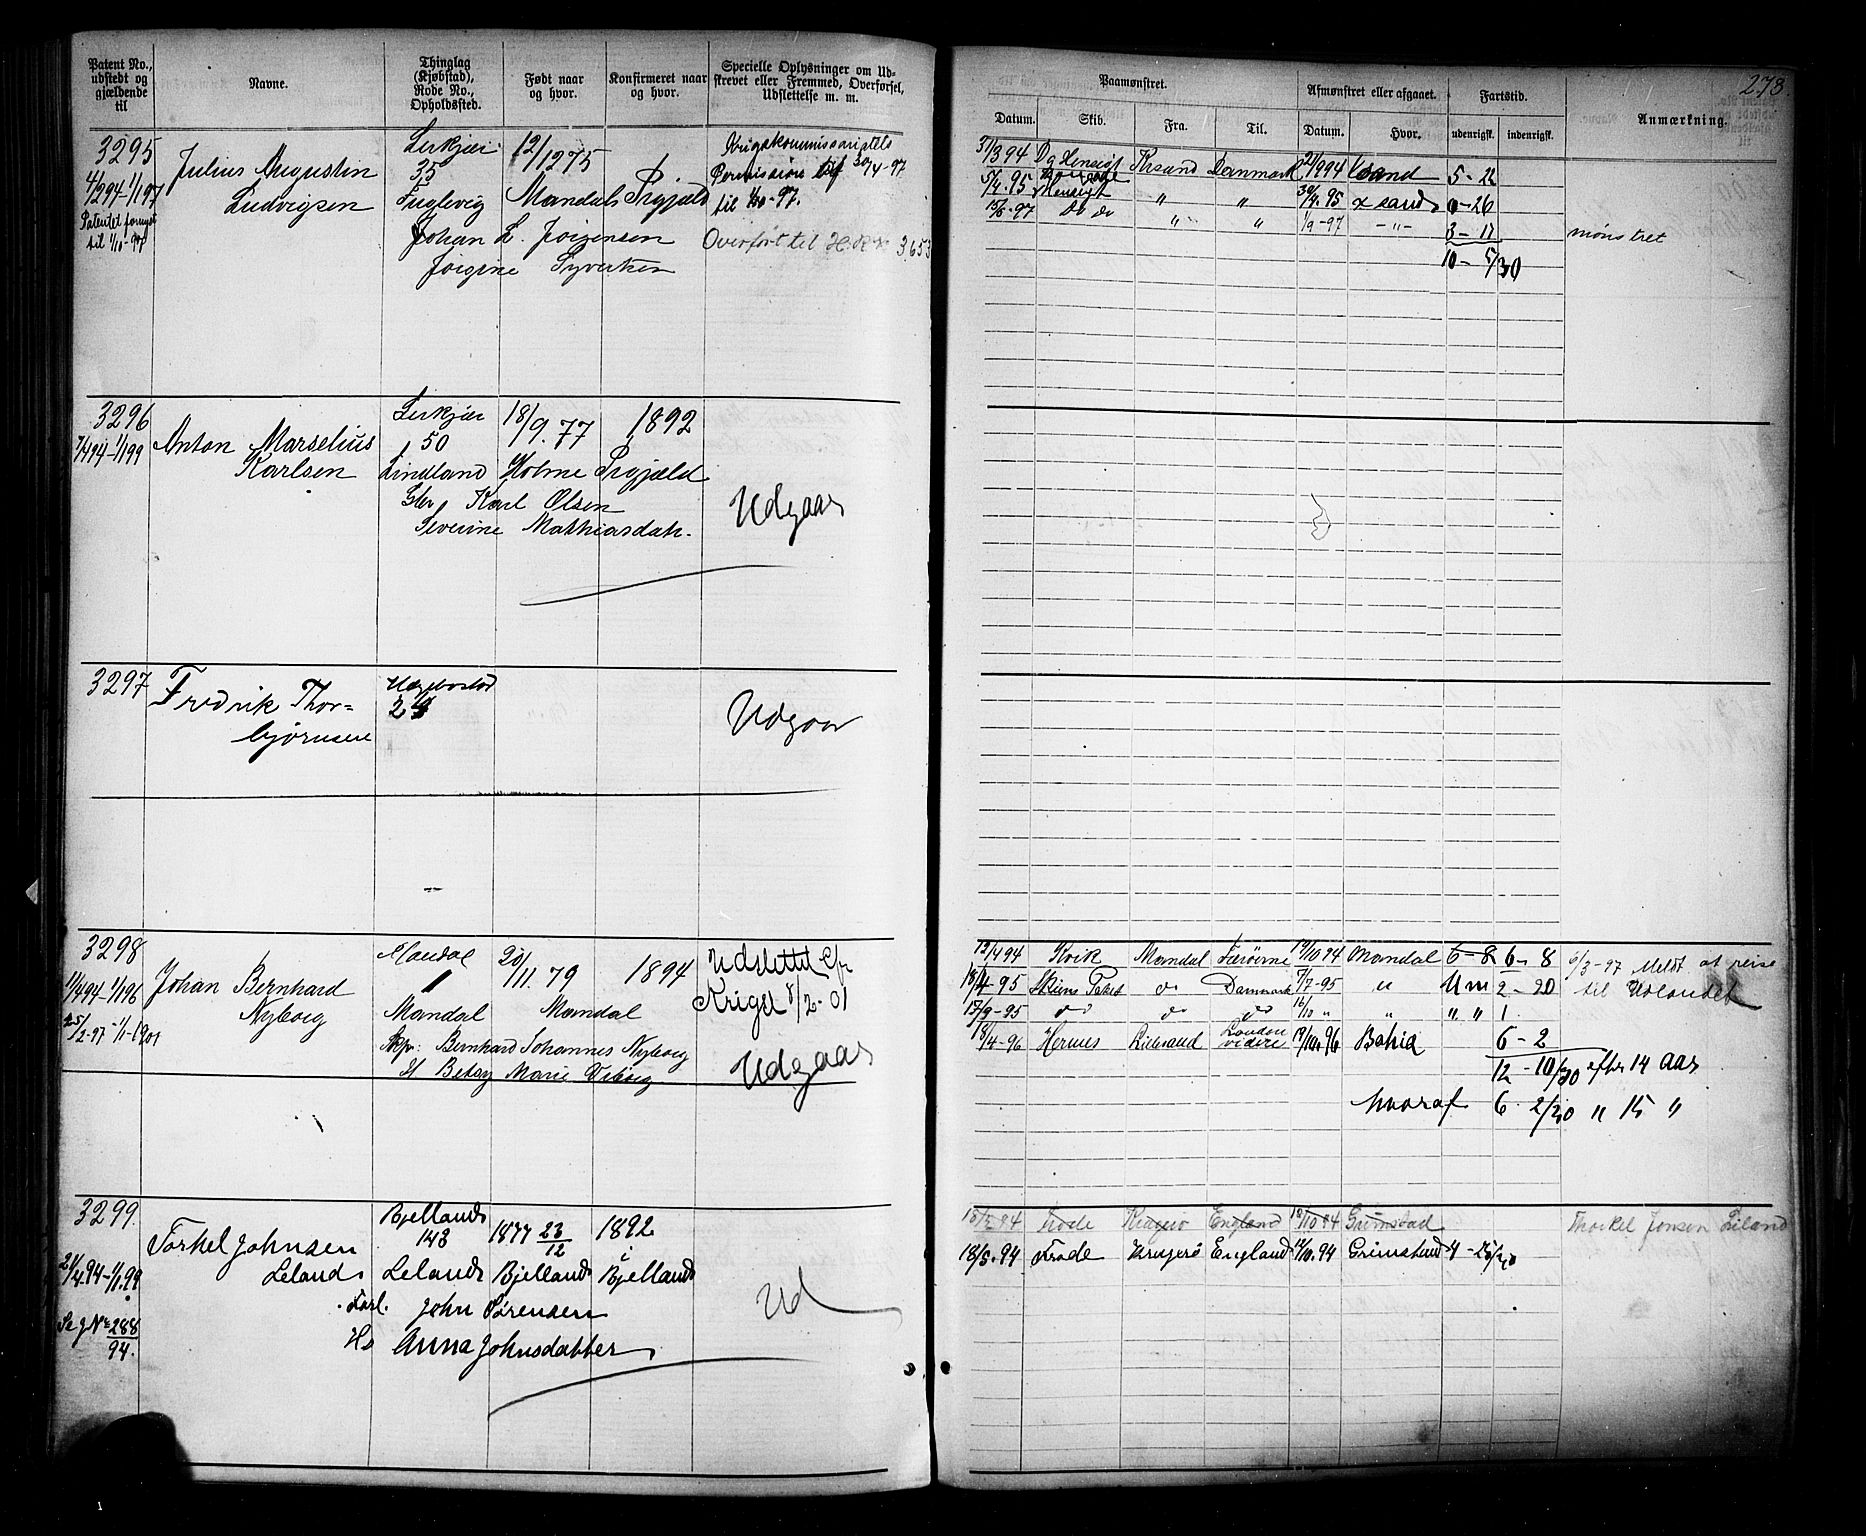 Patent No., udstedt og gjældende til
Navne.
Thinglag (Kjøbstad), Rode No., Opholdssted.
Født naar og hvor.
Konfirmeret naar og hvor.
Specielle Oplysninger om Udskrevet eller Fremmed, Overførsel, Udslettelse m. m.
3295
4/294-1/197
Patentet fornyet
til 1/10-97
Julius Augustin
Ludvigsen
35
Fuglevig
12/1275
Mandal
Johan L. Jørgensen
Jørgine Syvertsen
Krigskommissariatets
Permission 30/4-97
til 1/10-97.
Overført til H. R. No 3653
3296
7/494-1/199
Anton Marselius
Karlsen
50
Lindland
18/9.77
Holme
1892
Karl Olsen
Severine Mathiasdatr.
Udgaar
3297
Fredrik Thor-
bjørnsen
24
Udgaar
3298
11/494-1/196
25/2-97-1/1-1901
Johan Bernhard
Nyborg
Mandal
1
Mandal
20/11.79
Mandal
1894
Bernhard Johannes Nyborg
H Betsy Marie
Udslettet Efr
Krigsl 8/2-01
Udgaar
3299.
21/4.94-1/1.99
Sag No 288/94.
Torkel Johnsen
Leland
Bjelland
143
Leland
1877 23/12
Bjelland
1892
i
Bjelland
Forl. John Sørensen
Hs Anna Johnsdatter
Ud
273.
Paamønstret.
Afmønstret eller afgaaet.
Fartstid.
Anmærkning.
Datum.
Skib.
Fra.
Til.
Datum.
Hvor.
udenrigsk.
indenrigsk.
31/3 94 Krsand Danmark 21/994 5-22
5/4.95 " " 30/9.95 x sand 0-26
15/6-97 do do " " 1/9-97 -"- 3-17 mønstret
10-5/30
12/494 Kvik Mandal Færøerne 19/1094 Mandal 6-8 6-8 6/3-97 Meldt at reise
18/4-95 do Danmark 7/7-95 " U m 2-20 til Udlandet
17/9-95 do do do 16/10 " " " " 1
18/4-96 Hermes Lillesand London videre 19/10.96 Bahia 6-2
12-10/30 efter 14 aar
hvoraf 6. 2/30 " 15 "
18/5 94 Frode Kragerø England 12/10 94 Grimstad Thorkel Jonsen Leland
18/5.94 Frode Kragerø England 12/10.94 Grimstad 4-25/30